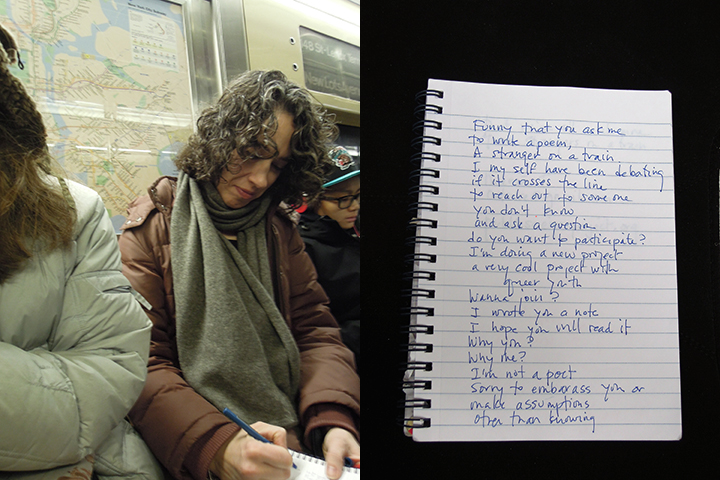 New York City Subway
68 St-
New Lots
Funny that you ask me
to write a poem,
A stranger on a train
I my self have been debating
if it crosses the line
to reach out to some one
you don't know
and ask a question
do you want to participate?
I'm doing a new project
a very cool project with
queer youth
Wanna join?
I wrote you a note
I hope you will read it
Why you?
Why me?
I'm not a poet
Sorry to embarass you or
make assumptions
Other than knowing